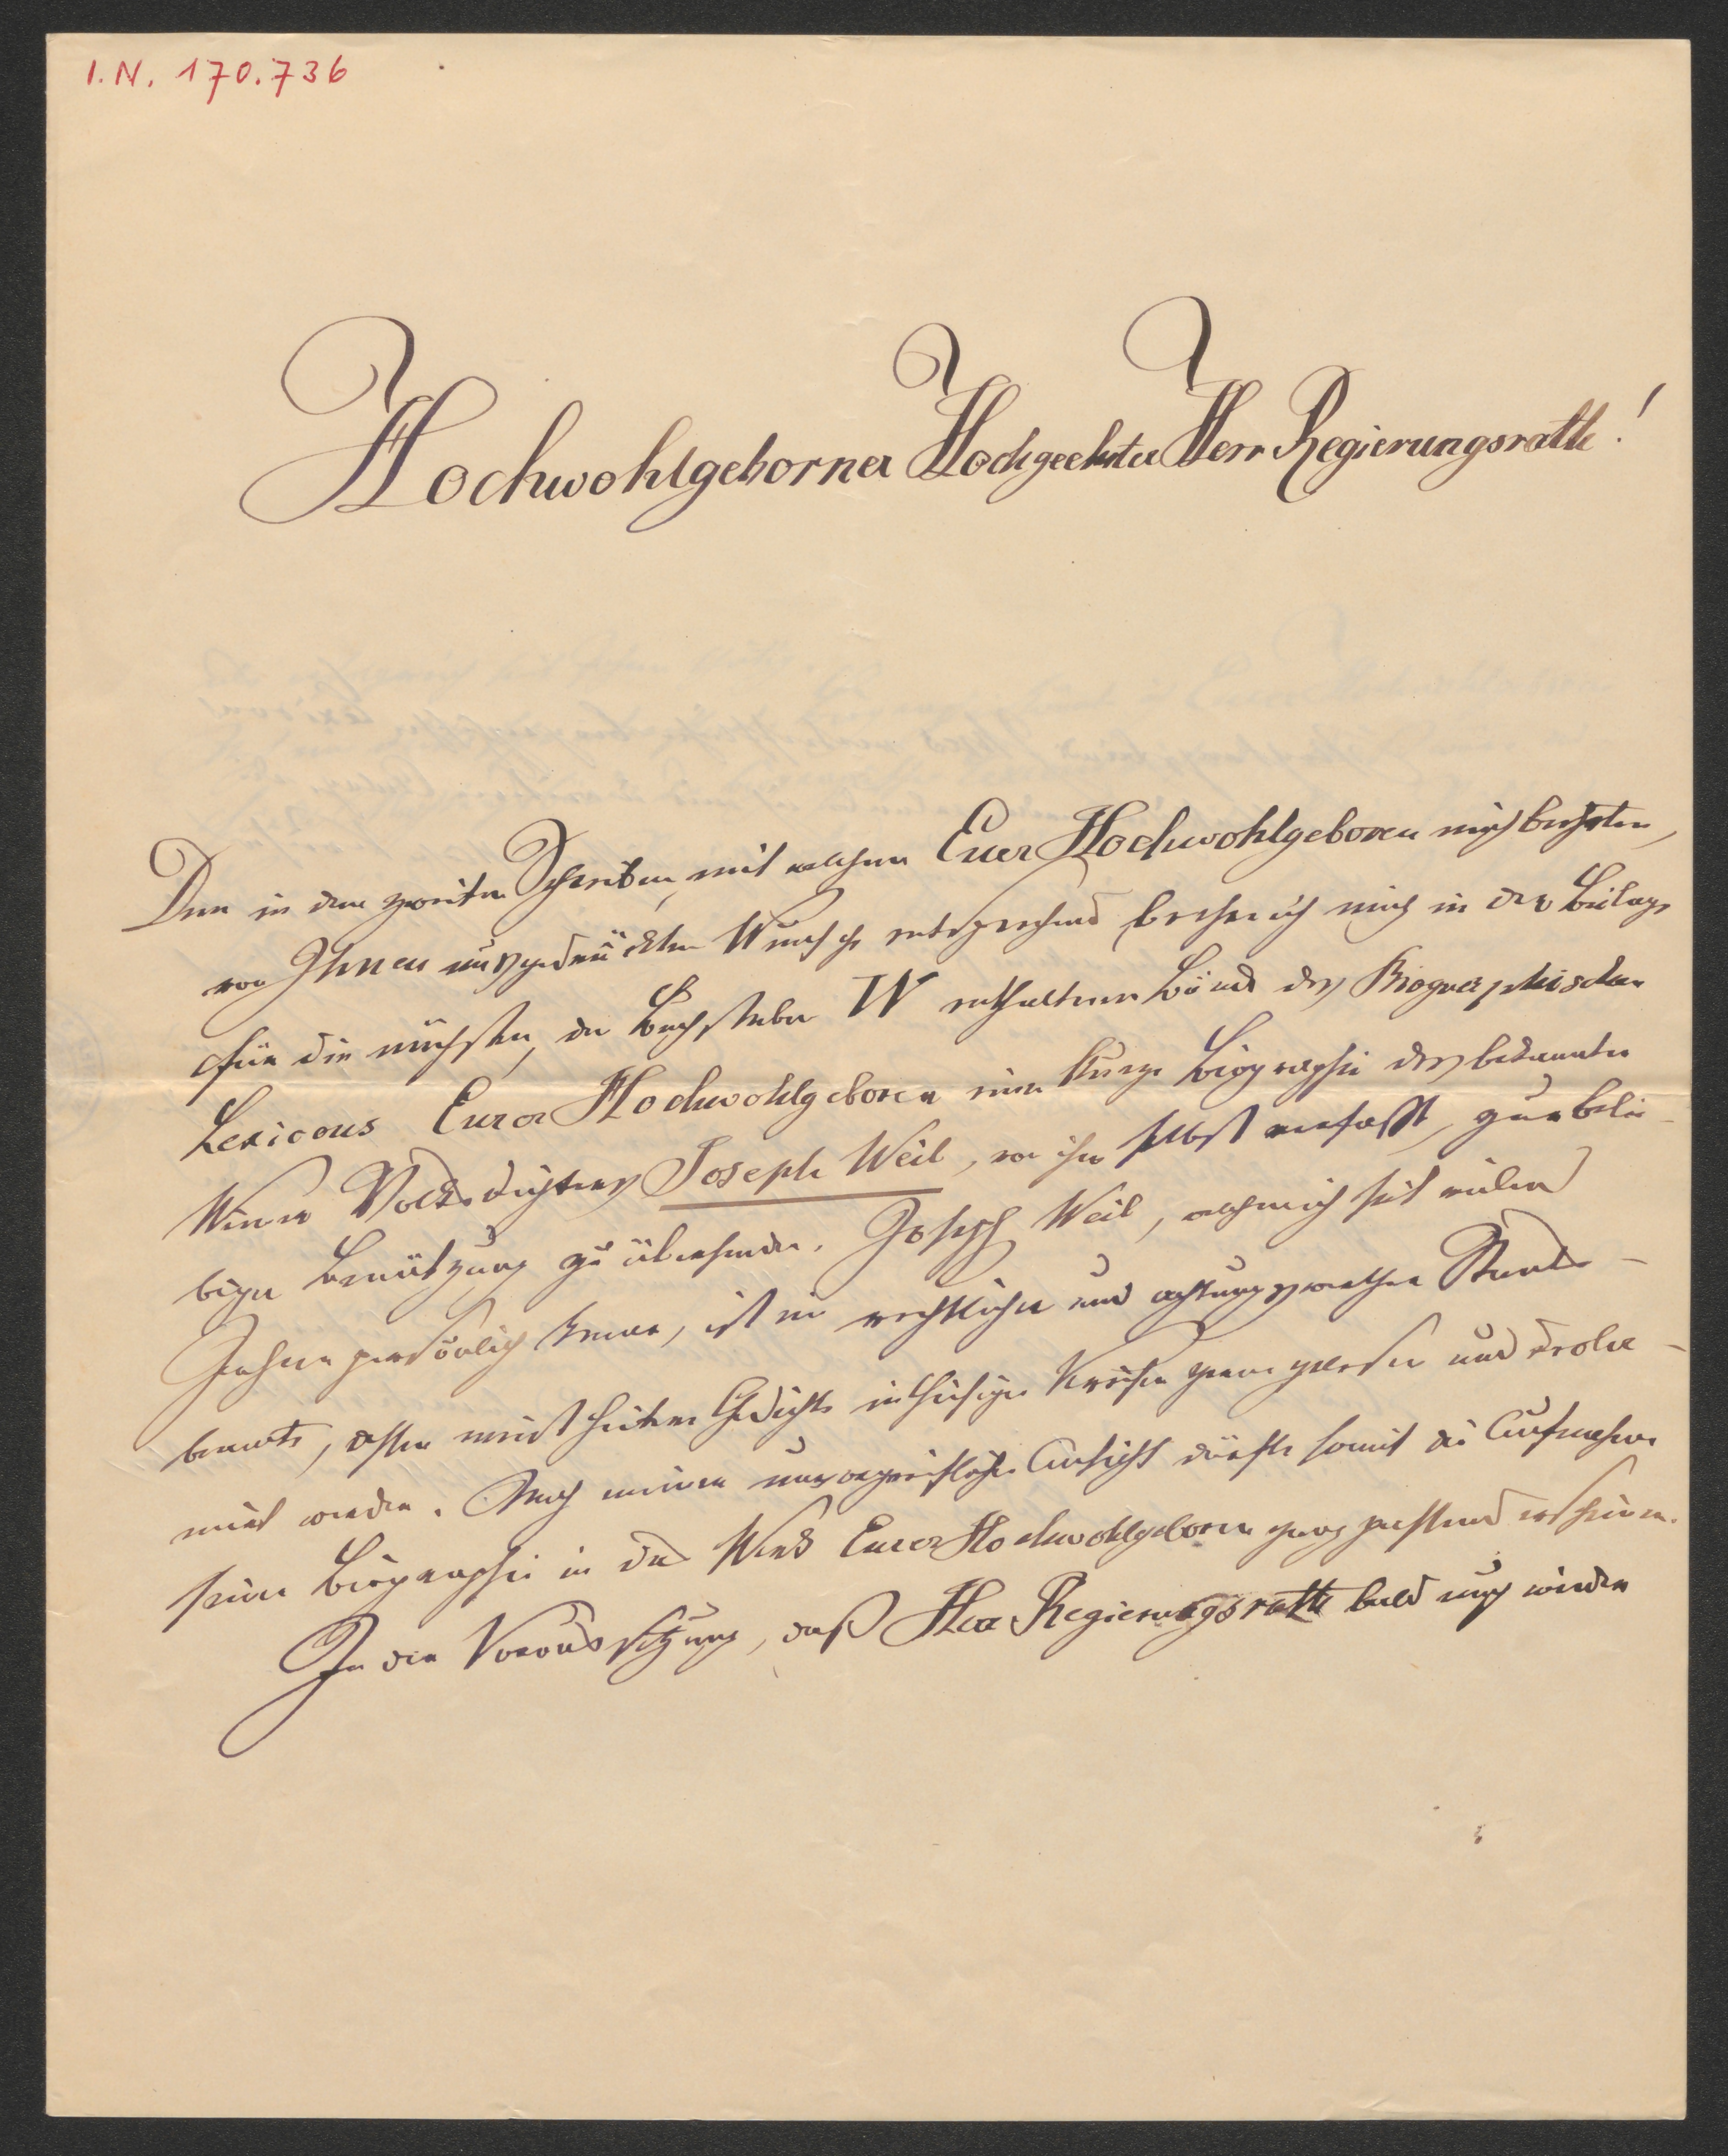 I.N. 170.736
Hochwohlgeborner Hochgeehrter Herr Regierungsrath!
Dem in dem zweiten Schreiben, mit welchem Euer Hochwohlgeboren mich beehrten,
von Ihnen ausgedrückten Wunsche entsprechend beehre ich mich in der Beilage
für die nächsten, den Buchstaben W enthaltenen Bände des Biographischen
Lexicons Euer Hochwohlgeboren eine kurze Biographie des bekannten
Wiener Volksdichters Joseph Weil, von ihm selbst verfaßt, zur belie-
bigen Benützung zu übersenden. Joseph Weil, welchen ich seit vielen
Jahren persönlich kenne, ist ein rechtlicher und achtungswerther Staats-
beamte, dessen meist heitere Gedichte in hiesigen Kreisen gerne gelesen und decla-
mirt werden. Nach meiner unvorgreiflichen Ansicht dürfte somit die Aufnahme
seiner Biographie in das Werk Euer Hochwohlgeboren ganz passend erscheinen.
In der Voraussetzung, daß Herr Regierungsrath bald nach wieder